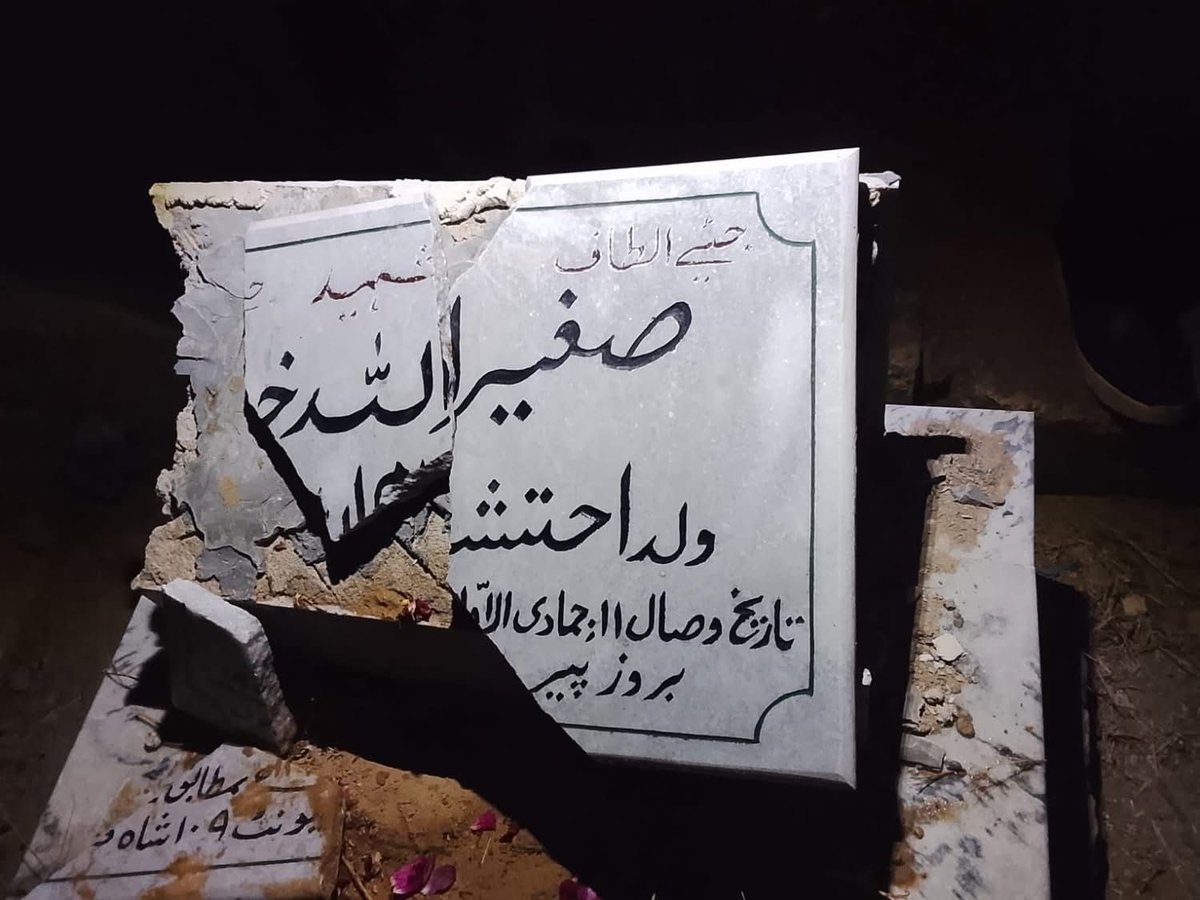 جیئے الطاف شہید
صغیر اللہ خا
ولد احتشا
تاریخ وصال ۱۱: جمادی الاوّل
بروز پیر
بمطابق
یونٹ ۱۰۹ شاہ